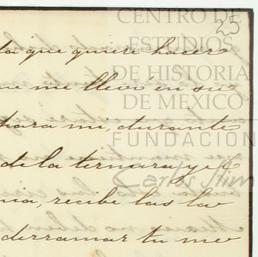 25
CENTRO DE
ESTUDIOS
DE HISTORIA
DE MEXICO
FUNDACIÓN
Carlos Slim
la que quiere hacer
me me lleve en su
para mi, durante
de la ternura y el
nia, recibe las la
derramar tu me